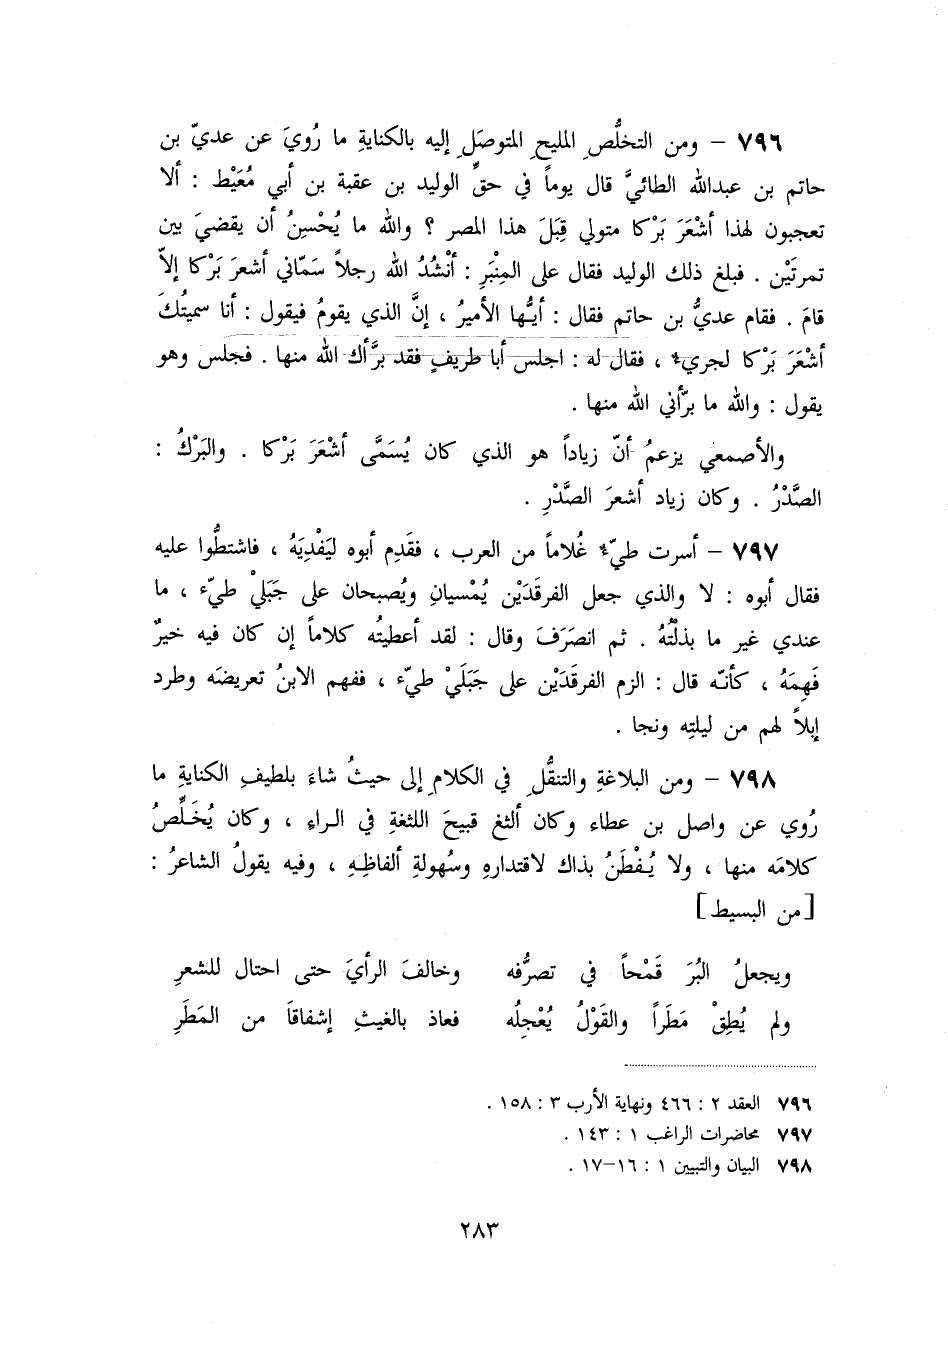 ٧٩٦ – ومن التخلُّصِ المليحِ المتوصَلِ إليه بالكنايةِ ما رُويَ عن عديّ بن
حاتم بن عبدالله الطائيَّ قال يوماً في حقِّ الوليد بن عقبة بن أبي مُعَيْط : ألا
تعجبون لهذا أشْعَرَ بَرْكا متولي قِبَلَ هذا المصر ؟ والله ما يُحْسِنُ أن يقضيَ بين
تمرتَيْن . فبلغ ذلك الوليد فقال على المِنْبَرِ : أنْشُدُ الله رجلاً سَمّاني أشعرَ بَرْكا إلاّ
قامَ . فقام عديُّ بن حاتم فقال : أيـُّها الأميرُ ، إنَّ الذي يقومُ فيقول : أنا سميتُكَ
أشْعَرَ بَرْكا لجريء ، فقال له : اجلس أبا طريفٍ فقد برَّأك الله منها . فجلس وهو
يقول : والله ما برّأني الله منها .
والأصمعي يزعمُ أنّ زياداً هو الذي كان يُسَمَّى أشْعَرَ بَرْكا . والبَرْكُ :
الصَّدْرُ . وكان زياد أشعرَ الصَّدْرِ .
٧٩٧ – أسرت طيّء غُلاماً من العرب ، فقَدِم أبوه ليَفْدِيَهُ ، فاشتطُّوا عليه
فقال أبوه : لا والذي جعل الفرقَدَيْن يُمْسيانِ ويُصبحان على جَبَليْ طيّء ، ما
عندي غير ما بذلْتُهُ . ثم انصَرَفَ وقال : لقد أعطيتُه كلاماً إن كان فيه خيرٌ
فَهِمَهُ ، كأنـّه قال : الزم الفرقَدَيْن على جَبَلَيْ طيّء ، ففهم الابنُ تعريضَه وطرد
إبلاً لهم من ليلتِه ونجا .
٧٩٨ – ومن البلاغةِ والتنقُّلِ في الكلامِ إلى حيثُ شاءَ بلطيفِ الكنايةِ ما
رُوي عن واصل بن عطاء وكان ألثغ قبيحَ اللثغةِ في الـراءِ ، وكان يُخَلِّصُ
كلامَه منها ، ولا يُـفْطَنُ بذاك لاقتدارهِ وسُهولةِ ألفاظِـهِ ، وفيه يقولُ الشاعرُ :
[من البسيط]
ويجعلُ البُرَ قَمْحاً في تصرُّفه وخالفَ الرأيَ حتى احتال للشعرِ
ولم يُطِقْ مَطَراً والقَوْلُ يُعْجِلُه فعاذ بالغيثِ إشفاقاً من المَطَرِ
٧٩٦ العقد ٢ : ٤٦٦ ونهاية الأرب ٣ : ١٥٨ .
٧٩٧ محاضرات الراغب ١ : ١٤٣ .
٧٩٨ البيان والتبيين ١ : ١٦–١٧ .
٢٨٣